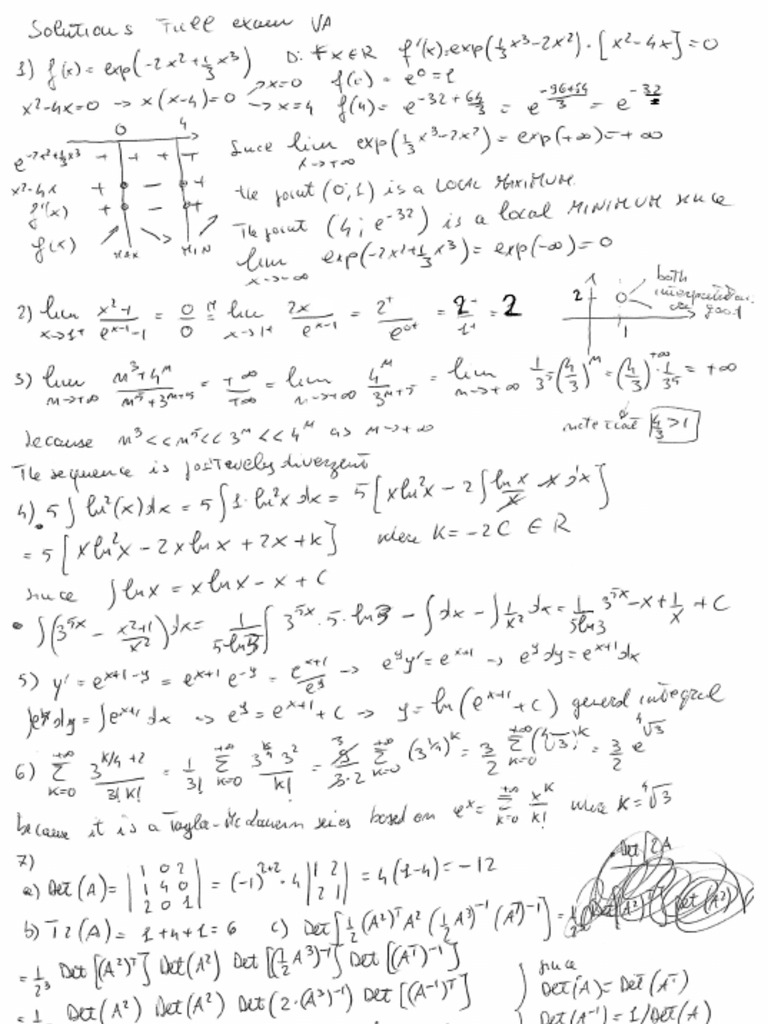 Solutions Full exam VA
1) f(x) = exp(-2x²+⅓x³) D: ∀x∈R f'(x)=exp(⅓x³-2x²)·[x²-4x]=0
x²-4x=0 → x(x-4)=0 ↗x=0 f(0)=e⁰=1
↘x=4 f(4)=e^(-32+64/3) = e^((-96+64)/3) = e^(-32
0 4
e^(-2x²+⅓x³) + + + +
x²-4x + - +
f'(x) + - +
f(x) ↗ MAX ↘ MIN ↗
Since lim x→+∞ exp(⅓x³-2x²) = exp(+∞)=+∞
the point (0;1) is a LOCAL MAXIMUM.
The point (4; e^(-32)) is a local MINIMUM since
lim x→-∞ exp(-2x²+⅓x³) = exp(-∞) = 0
2) lim x→1⁺ (x²-1)/(e^(x-1)-1) = 0/0 =ᴴ lim x→1⁺ 2x/e^(x-1) = 2⁺/e^(0⁺) = 2/1⁺ = 2
2 1 both are good
3) lim n→+∞ (n³+4ⁿ)/(n⁵+3^(n+5)) = +∞/+∞ = lim n→+∞ 4ⁿ/3^(n+5) = lim n→+∞ 1/3⁵·(4/3)ⁿ = (4/3)^(+∞)·1/3⁵ = +∞
note that 4/3>1
because n³<<n⁵<<3ⁿ<<4ⁿ as n→+∞
The sequence is positively divergent
4) • 5∫ln²(x)dx = 5∫1·ln²x dx = 5[xln²x - 2∫lnx/x · x dx]
= 5[xln²x - 2xlnx + 2x + k] where K = -2C ∈ R
since ∫lnx = xlnx - x + C
• ∫(3^(5x) - (x²+1)/x²)dx = 1/(5·ln3) ∫3^(5x)·5·ln3 - ∫dx - ∫1/x² dx = 1/(5ln3) 3^(5x) - x + 1/x + C
5) y' = e^(x+1-y) = e^(x+1) e^(-y) = e^(x+1)/e^y → e^y y' = e^(x+1) → e^y dy = e^(x+1) dx
∫e^y dy = ∫e^(x+1) dx → e^y = e^(x+1) + C → y = ln(e^(x+1) + C) general integral
6) Σ k=0 +∞ 3^(k/4+2)/(3!k!) = 1/3! Σ k=0 +∞ 3^(k/4) 3²/k! = 3 9/(3·2) Σ k=0 +∞ (3^(1/4))^k = 3/2 Σ k=0 +∞ (⁴√3)^k = 3/2 e^(⁴√3)
because it is a Taylor-McLaurin series based on eˣ = Σ k=0 +∞ x^k/k! where K = ⁴√3
7)
a) Det(A) = |1 0 2; 1 4 0; 2 0 1| = (-1)^(2+2)·4 |1 2; 2 1| = 4(1-4) = -12
b) Tr(A) = 1+4+1 = 6 c) Det[½(A²)ᵀA²(½A³)⁻¹(Aᵀ)⁻¹] =
= 1/2³ Det[(A²)ᵀ] Det(A²) Det[(½A³)⁻¹] Det[(Aᵀ)⁻¹]
since
Det(A) = Det(Aᵀ)
= 1/ Det(A²) Det(A²) Det(2·(A³)⁻¹) Det[(A⁻¹)ᵀ]
Det(A⁻¹) = 1/Det(A)